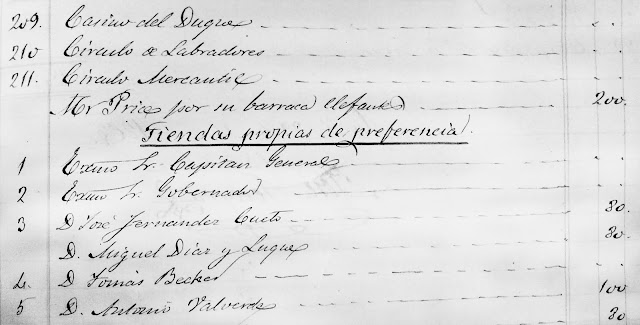 209. Casino del Duque
210 Círculo de Labradores
211. Círculo Mercantil
Mr Price por su barraca elefantes 200.
Tiendas propias de preferencia.
1 Exmo Sr. Capitan General
2 Exmo Sr. Gobernador
3 D José Fernandez Cueto 80.
D. Miguel Díaz y Luque 80.
4. D Tomás Becker 100
5 D. Antonio Valverde 80